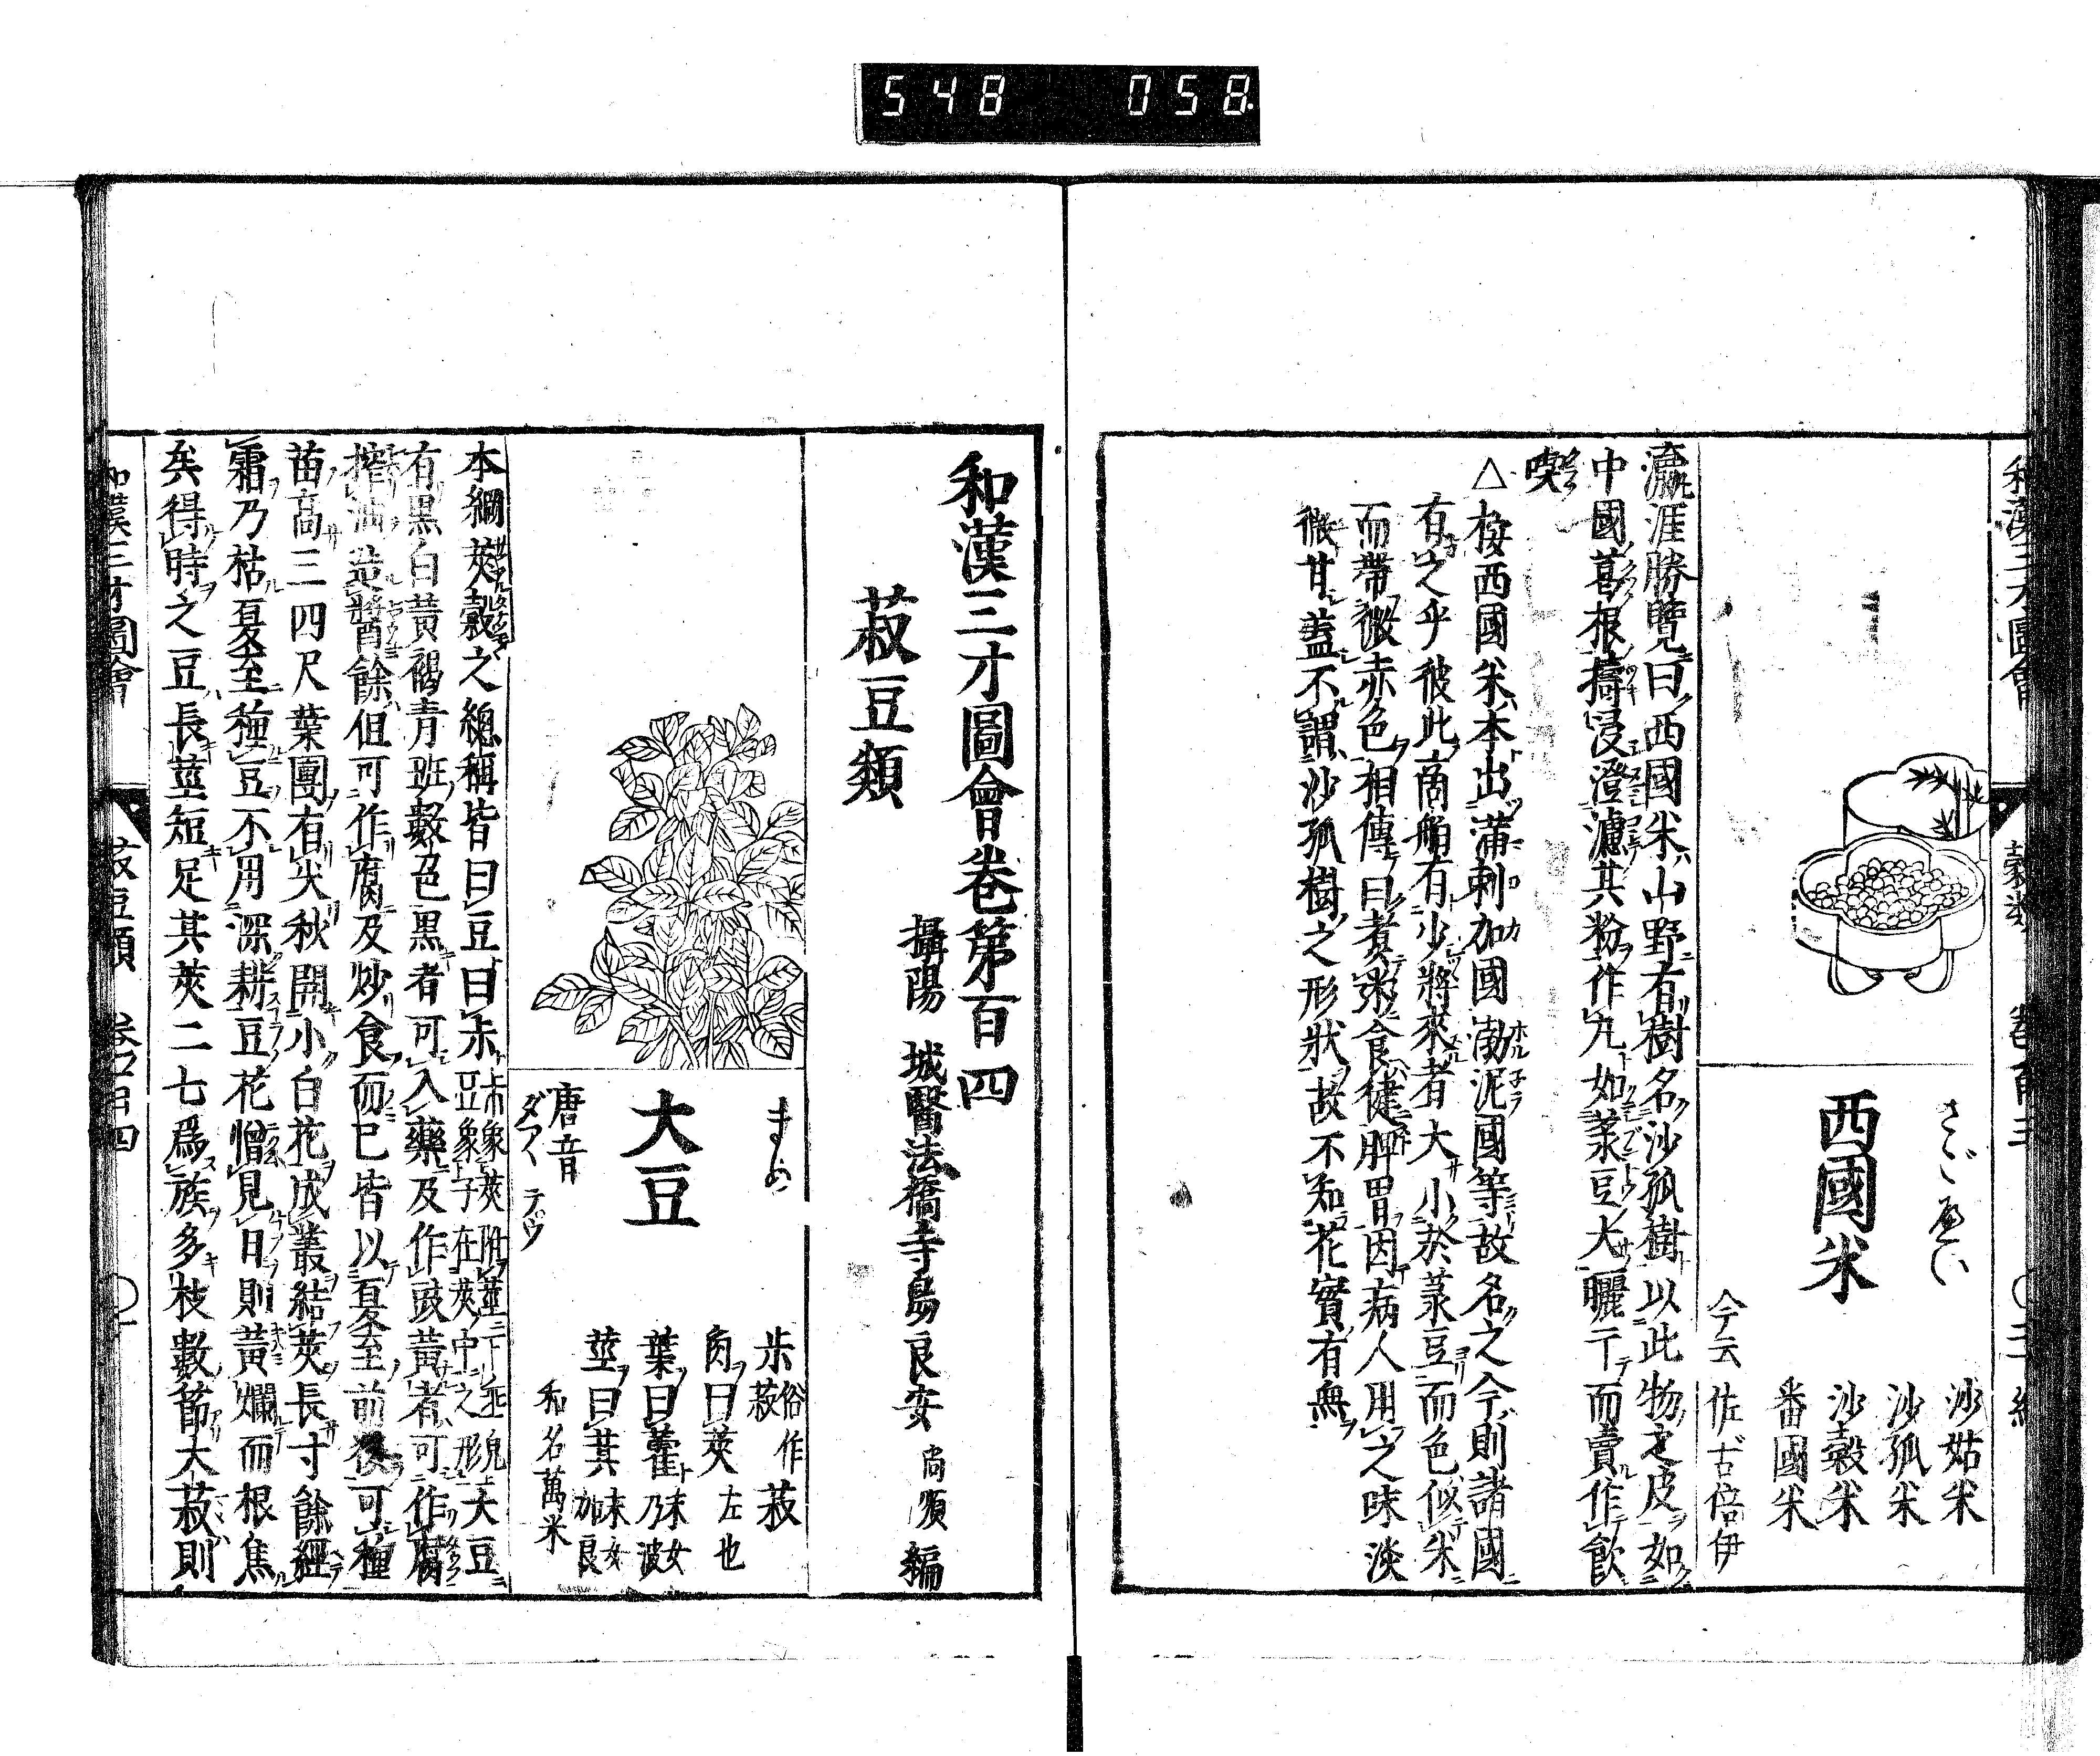 548 058.
和漢三才圖會 穀類 卷百三 〇三
さごべい
西國米
沙姑米
沙孤米
沙穀米
番國米
今云 佐古倍伊
瀛涯勝覽曰西國米山野有樹名沙孤樹以此物之皮如
中國葛根擣浸澄濾其粉作丸如菉豆大曬干而賣作飮
喫
△按西國米本出蒲剌加國渤泥國等故名之今則諸國
有之乎彼此商舶有少將來者大小於菉豆而色似米
而帶微赤色相傳曰煮粥食健脾胃因病人用之味淡
微甘蓋不謂沙孤樹之形狀故不知花實有無
和漢三才圖會卷第百四
攝陽 城醫法橋寺島良安 尚順 編
菽豆類
まめ
大豆
唐音
ダアヽ テ゚ウ
尗 俗作菽
菽
角曰莢 左也
葉曰藿 末女乃波
莖曰萁 末女加良
和名萬米
本綱莢穀之總稱皆曰豆曰尗 尗象莢附莖下垂貌 豆象子在莢中之形 大豆
有黑白黃褐青斑數色黑者可入藥及作豉黃者可作腐
搾油造醬餘但可作腐及炒食而已皆以夏至前後可種
苗高三四尺葉團有尖秋開小白花成叢結莢長寸餘經
霜乃枯夏至種豆不用深耕豆花憎見日則黃爛而根焦
矣得時之豆長莖短足其莢二七爲族多枝數節大菽則
和漢三才圖會 菽豆類 卷百四 〇一